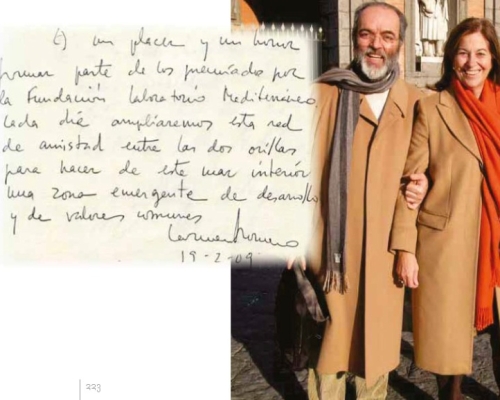 Es un placer y un honor
formar parte de los premiados por
la Fundación Laboratorio Mediterráneo
Cada día ampliaremos esta red
de amistad entre las dos orillas
para hacer de este mar interior
una zona emergente de desarrollo
y de valores comunes
Carmen Romero
19-2-09
223